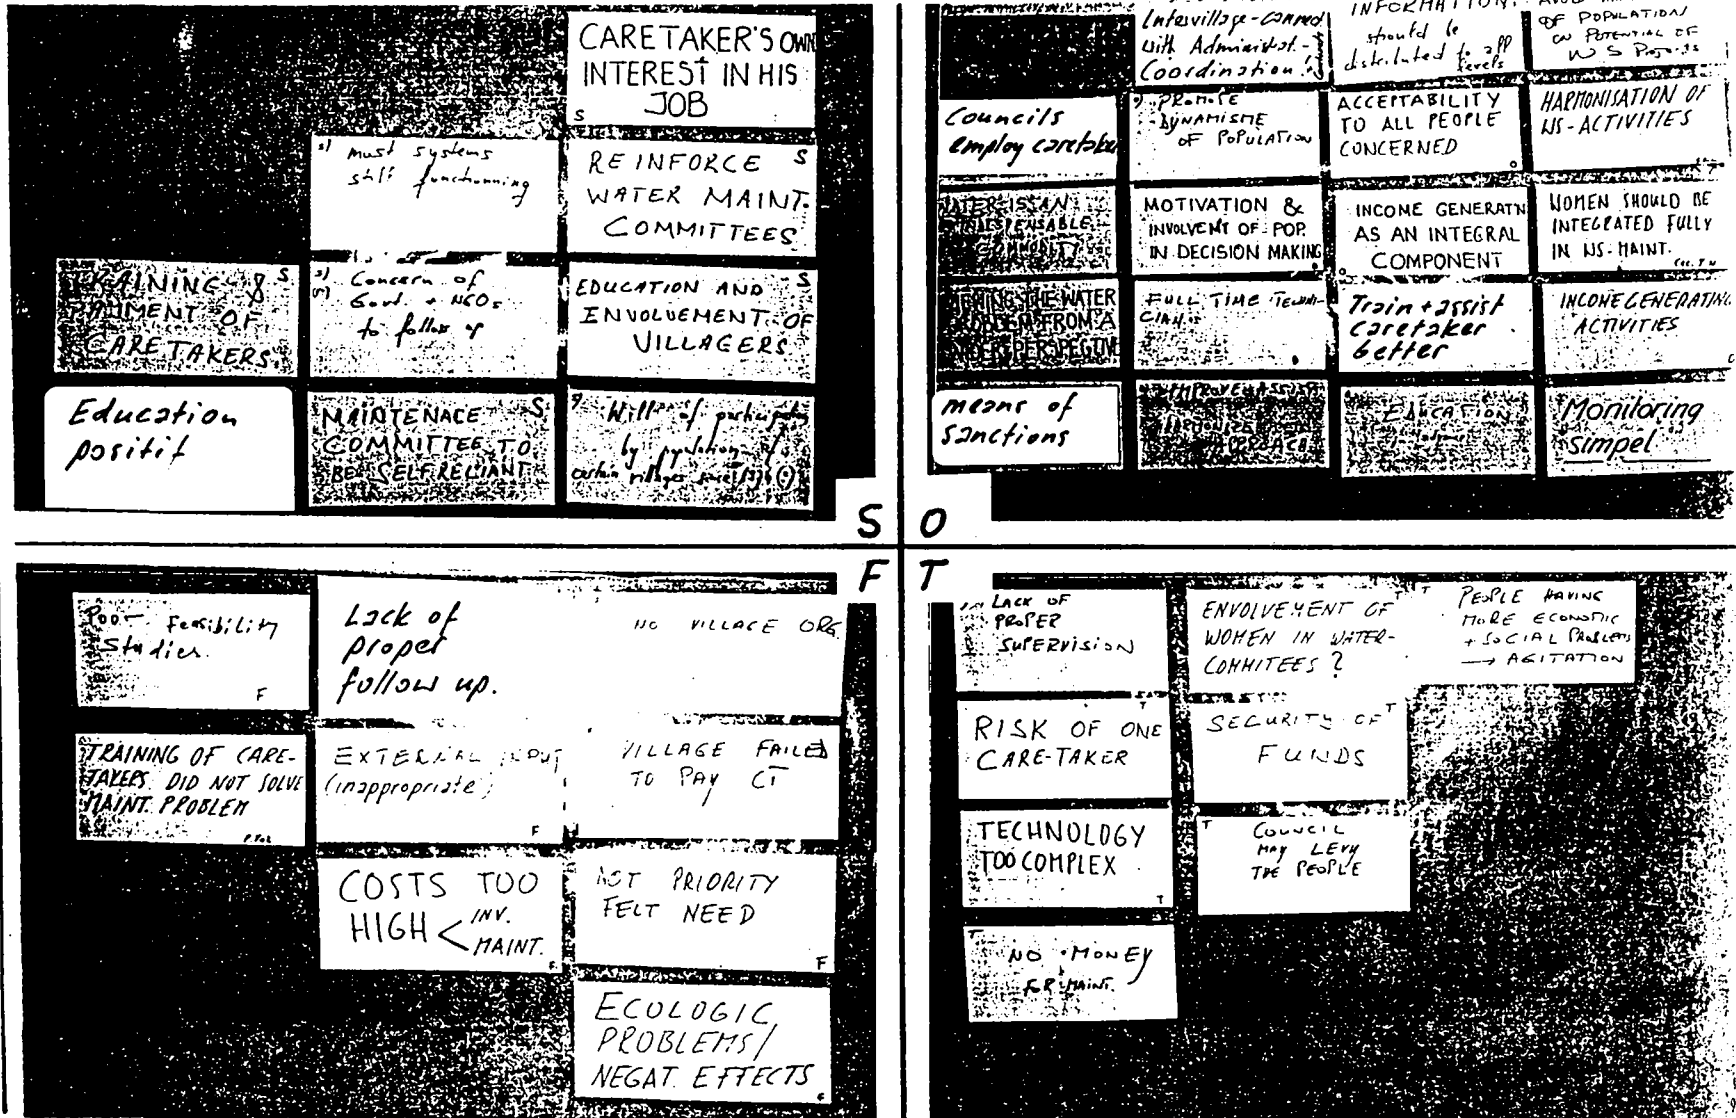 CARETAKER'S OWN
INTEREST IN HIS
JOB
S
s) Must systems
still functionning
REINFORCE S
WATER MAINT.
COMMITTEES
TRAINING & S
PAIMENT OF
CARETAKERS
s) Concern of
Govt. + NGOs
to follow up
EDUCATION AND S
INVOLVEMENT OF
VILLAGERS
Education
positif
MAINTENACE S
COMMITTEE TO
BE SELFRELIANT
Will of
by of
certain villages
S
Intervillage-
with Administrat.-
Coordination!
INFORMATION:
should be
distributed to all
levels
OF POPULATION
ON POTENTIAL OF
WS Projects
Councils
employ caretaker
PROMOTE
DYNAMISME
OF POPULATION
ACCEPTABILITY
TO ALL PEOPLE
CONCERNED
HARMONISATION OF
WS-ACTIVITIES
WATER IS AN
INDISPENSABLE
MOTIVATION &
INVOLVENT OF POP.
IN DECISION MAKING
INCOME GENERATN
AS AN INTEGRAL
COMPONENT
WOMEN SHOULD BE
INTEGRATED FULLY
IN WS-MAINT.
THE WATER
PROBLEM FROM A
PERSPECTIVE
FULL TIME TECHNI-
CIAN
Train + assist
caretaker
better
INCOME GENERATING
ACTIVITIES
means of
sanctions
APPROACH
EDUCATION
Monitoring
simpel
O
F
Poor feasibility
Studies.
F
Lack of
proper
follow up.
NO VILLAGE ORG.
TRAINING OF CARE-
TAKERS DID NOT SOLVE
MAINT. PROBLEM
EXTERNAL INPUT
(inappropriate)
F
VILLAGE FAILED
TO PAY CT
COSTS TOO
HIGH < INV.
MAINT.
F
NOT PRIORITY
FELT NEED
F
ECOLOGIC
PROBLEMS/
NEGAT. EFFECTS
T
LACK OF
PROPER
SUPERVISION
ENVOLVEMENT OF T
WOMEN IN WATER-
COMMITEES?
T PEOPLE HAVING
MORE ECONOMIC
+ SOCIAL PROBLEMS
→ AGITATION
RISK OF ONE
CARE-TAKER
SECURITY OF T
FUNDS
TECHNOLOGY
TOO COMPLEX
T
T COUNCIL
MAY LEVY
THE PEOPLE
T
NO MONEY
FOR MAINT.